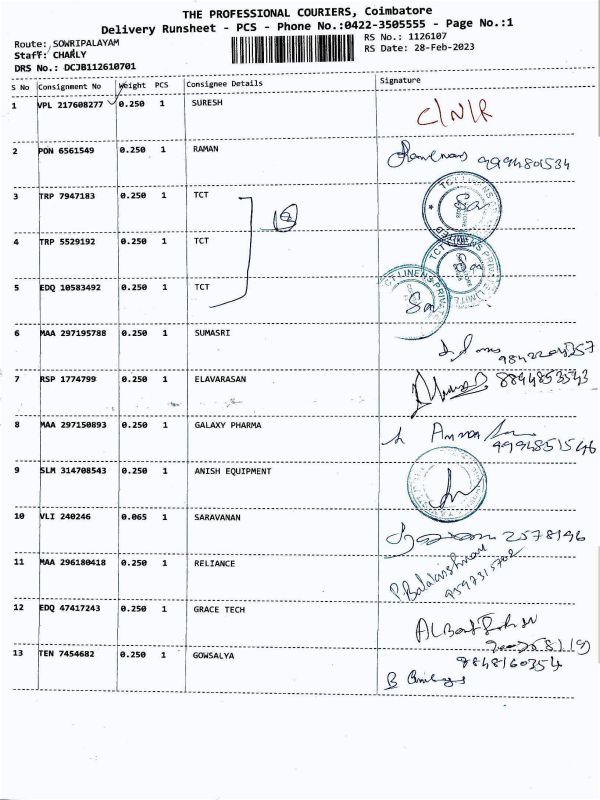 THE PROFESSIONAL COURIERS, Coimbatore
Delivery Runsheet - PCS - Phone No.:0422-3505555 - Page No.:1
Route: SOWRIPALAYAM
RS No.: 1126107
Staff: CHARLY
RS Date: 28-Feb-2023
DRS No.: DCJB112610701
S No Consignment No Weight PCS Consignee Details Signature
1 VPL 217608277 0.250 1 SURESH C/N/R
2 PON 6561549 0.250 1 RAMAN
3 TRP 7947183 0.250 1 TCT
4 TRP 5529192 0.250 1 TCT
5 EDQ 10583492 0.250 1 TCT
6 MAA 297195788 0.250 1 SUMASRI
7 RSP 1774799 0.250 1 ELAVARASAN 8894853543
8 MAA 297150893 0.250 1 GALAXY PHARMA
9994851546
9 SLM 314708543 0.250 1 ANISH EQUIPMENT
10 VLI 240246 0.065 1 SARAVANAN
2578196
11 MAA 296180418 0.250 1 RELIANCE P. Balakrishnan
12 EDQ 47417243 0.250 1 GRACE TECH
13 TEN 7454682 0.250 1 GOWSALYA 9848160354